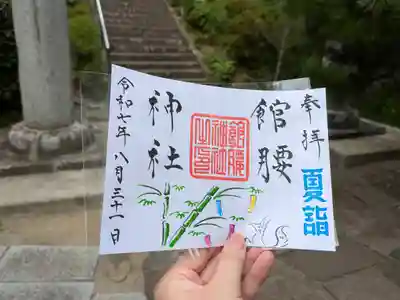 奉拝
夏詣
館腰
神社
館腰神社之印
令和七年八月三十一日